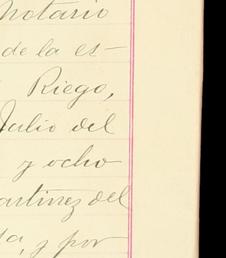 notario
de la es-
Riego,
Julio del
y ocho
artinez del
y por